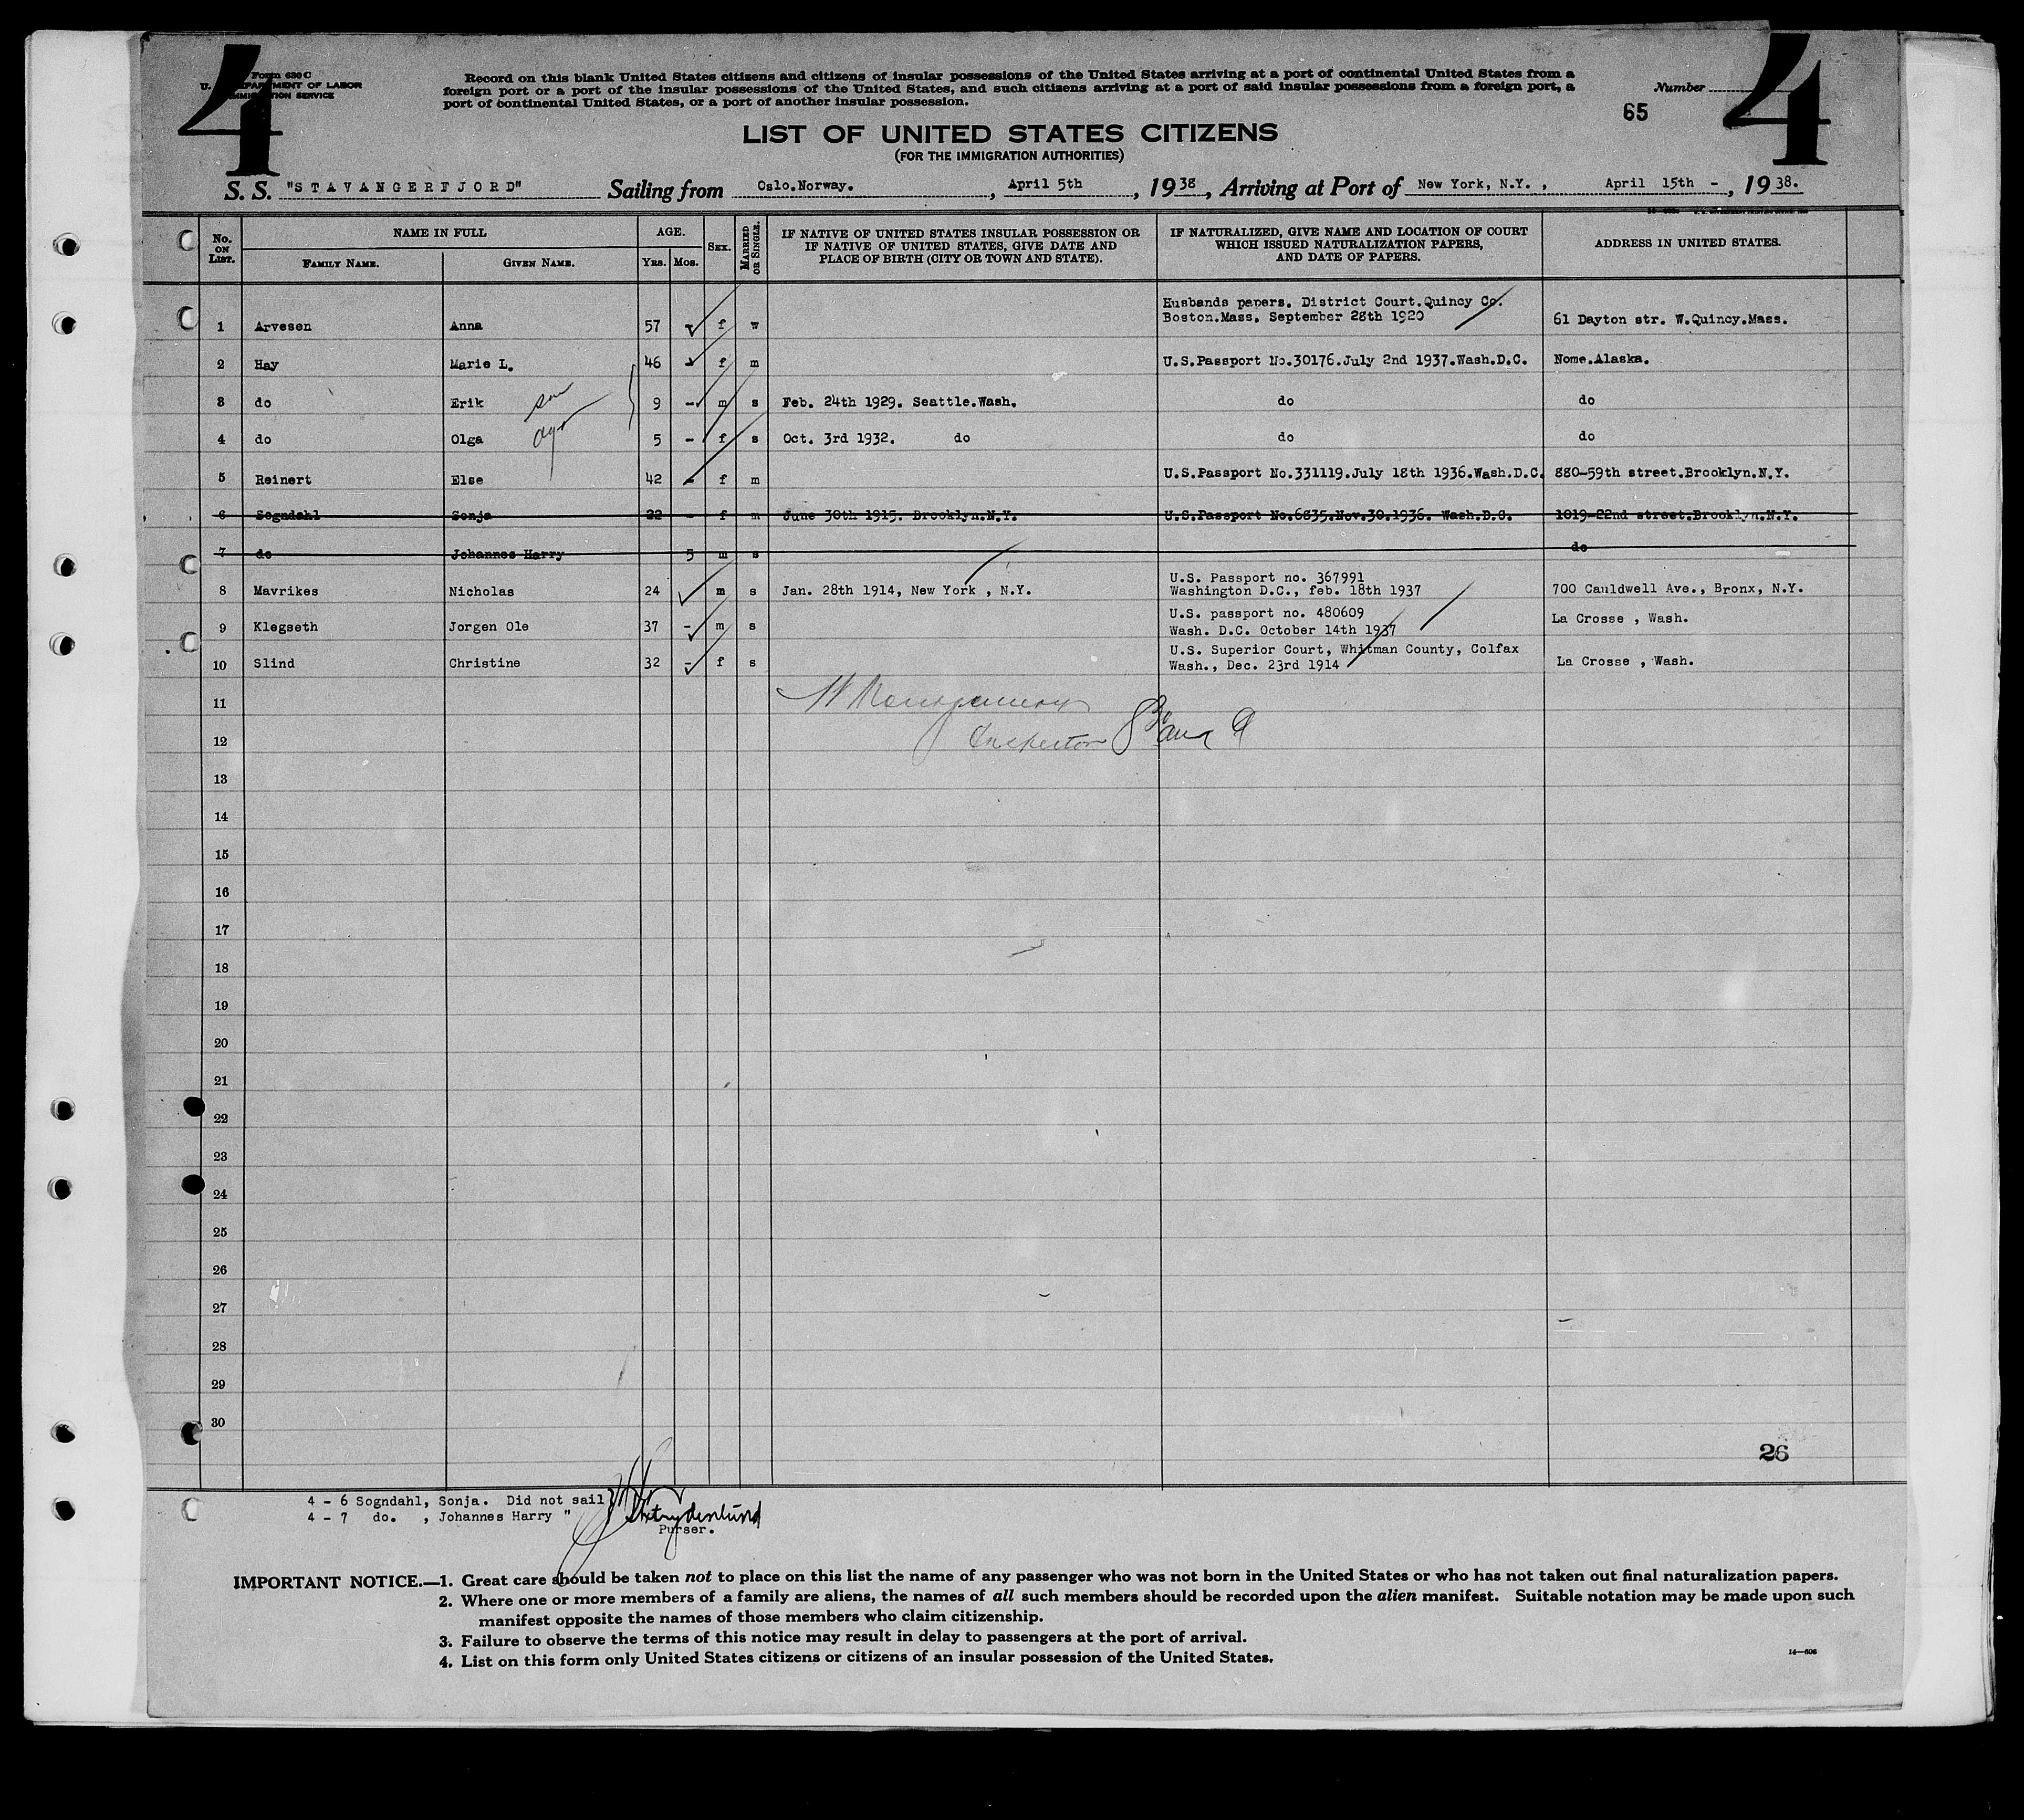 4
4
Form 630 C
U. S. DEPARTMENT OF LABOR
IMMIGRATION SERVICE
Record on this blank United States citizens and citizens of insular possessions of the United States arriving at a port of continental United States from a
foreign port or a port of the insular possessions of the United States, and such citizens arriving at a port of said insular possessions from a foreign port, a
port of continental United States, or a port of another insular possession.
Number
65
LIST OF UNITED STATES CITIZENS
(FOR THE IMMIGRATION AUTHORITIES)
S. S. "STAVANGERFJORD" Sailing from Oslo.Norway. , April 5th , 1938, Arriving at Port of New York, N.Y. , April 15th - , 1938.
No. ON LIST. NAME IN FULL AGE. SEX. MARRIED OR SINGLE. IF NATIVE OF UNITED STATES INSULAR POSSESSION OR IF NATIVE OF UNITED STATES, GIVE DATE AND PLACE OF BIRTH (CITY OR TOWN AND STATE). IF NATURALIZED, GIVE NAME AND LOCATION OF COURT WHICH ISSUED NATURALIZATION PAPERS, AND DATE OF PAPERS. ADDRESS IN UNITED STATES.
FAMILY NAME. GIVEN NAME. YRS. MOS.
Husbands papers. District Court.Quincy Co.
1 Arvesen Anna 57 - f w Boston.Mass. September 28th 1920 61 Dayton str. W.Quincy.Mass.
2 Hay Marie L. 46 - f m U.S.Passport No.30176.July 2nd 1937.Wash.D.C. Nome.Alaska.
3 do Erik son 9 - m s Feb. 24th 1929. Seattle.Wash. do do
4 do Olga 5 - f s Oct. 3rd 1932. do do do
5 Reinert Else 42 - f m U.S.Passport No.331119.July 18th 1936.Wash.D.C. 880-59th street.Brooklyn.N.Y.
6 Sogndahl Sonja 22 - f m June 30th 1915. Brooklyn.N.Y. U.S.Passport No.6835.Nov.30.1936. Wash.D.C. 1019-22nd street.Brooklyn.N.Y.
7 do Johannes Harry 5 m s do
U.S. Passport no. 367991
8 Mavrikes Nicholas 24 m s Jan. 28th 1914, New York , N.Y. Washington D.C., feb. 18th 1937 700 Cauldwell Ave., Bronx, N.Y.
U.S. passport no. 480609
9 Klegseth Jorgen Ole 37 - m s Wash. D.C. October 14th 1937 La Crosse , Wash.
U.S. Superior Court, Whitman County, Colfax
10 Slind Christine 32 - f s Wash., Dec. 23rd 1914 La Crosse , Wash.
11 Montgomery
12 Inspector
13
14
15
16
17
18
19
20
21
22
23
24
25
26
27
28
29
30
26
4 - 6 Sogndahl, Sonja. Did not sail
4 - 7 do. , Johannes Harry "
Purser.
IMPORTANT NOTICE.—1. Great care should be taken not to place on this list the name of any passenger who was not born in the United States or who has not taken out final naturalization papers.
2. Where one or more members of a family are aliens, the names of all such members should be recorded upon the alien manifest. Suitable notation may be made upon such
manifest opposite the names of those members who claim citizenship.
3. Failure to observe the terms of this notice may result in delay to passengers at the port of arrival.
4. List on this form only United States citizens or citizens of an insular possession of the United States.
14—606